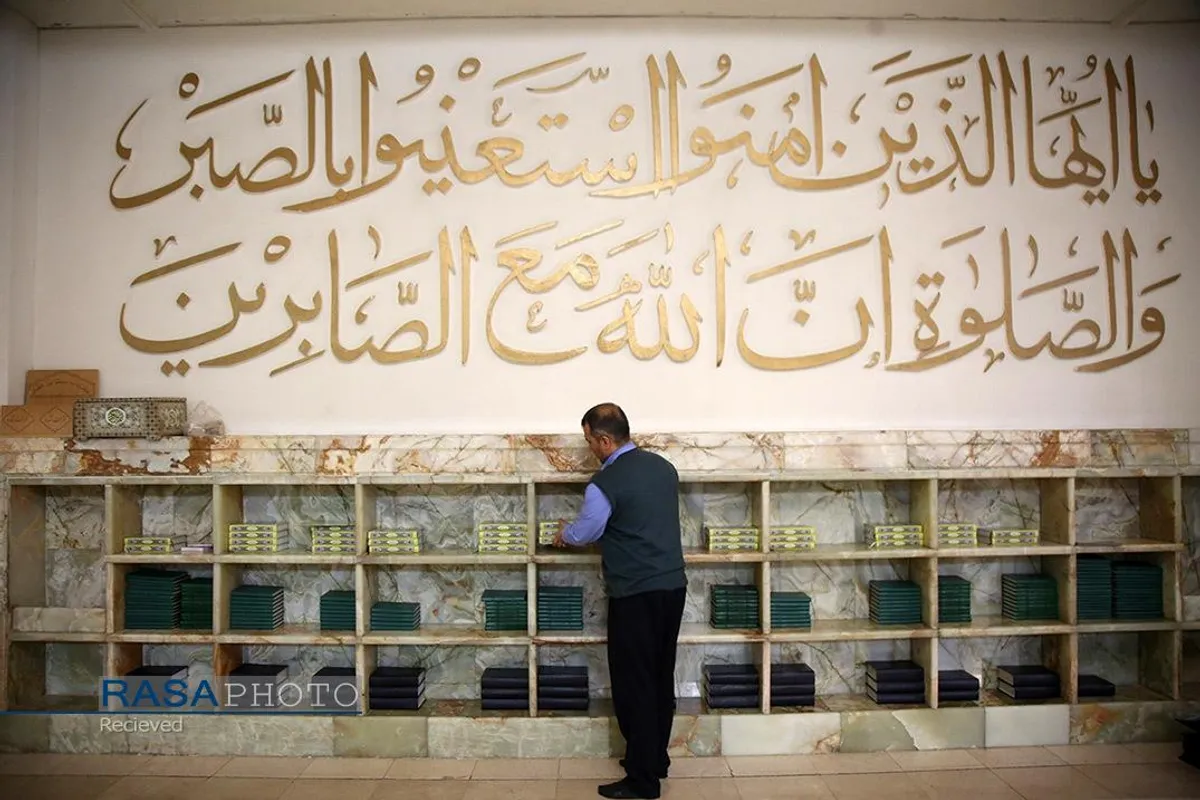 يا ايها الذين امنوا استعينوا بالصبر
والصلوة ان الله مع الصابرين
RASAPHOTO
Recieved